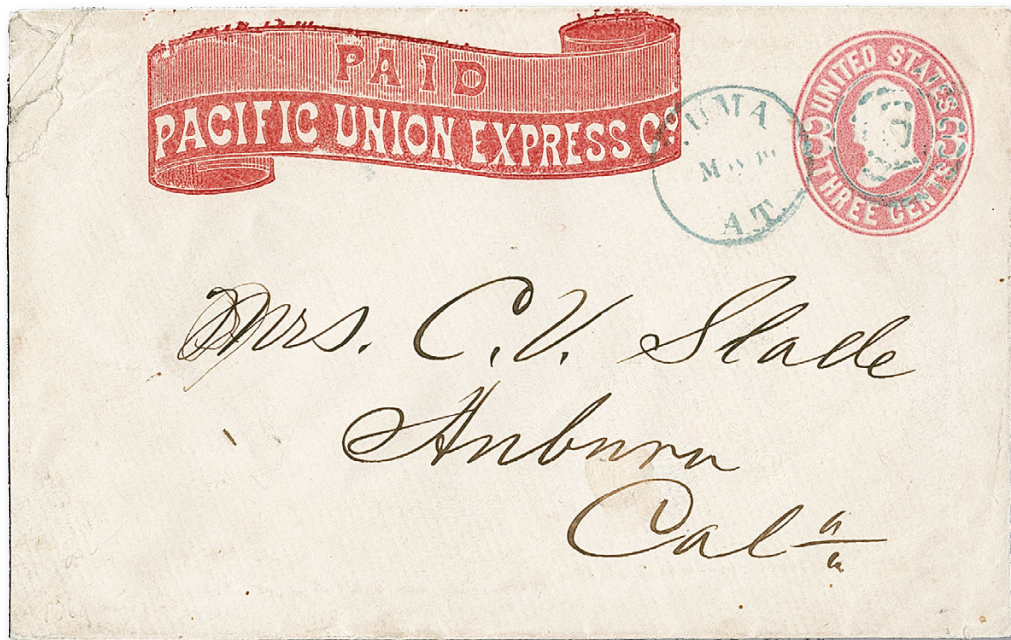 PAID
PACIFIC UNION EXPRESS Co
YUMA
A.T.
UNITED STATES
3 3
THREE CENTS
Mrs. C. V. Slade
Auburn
Cala